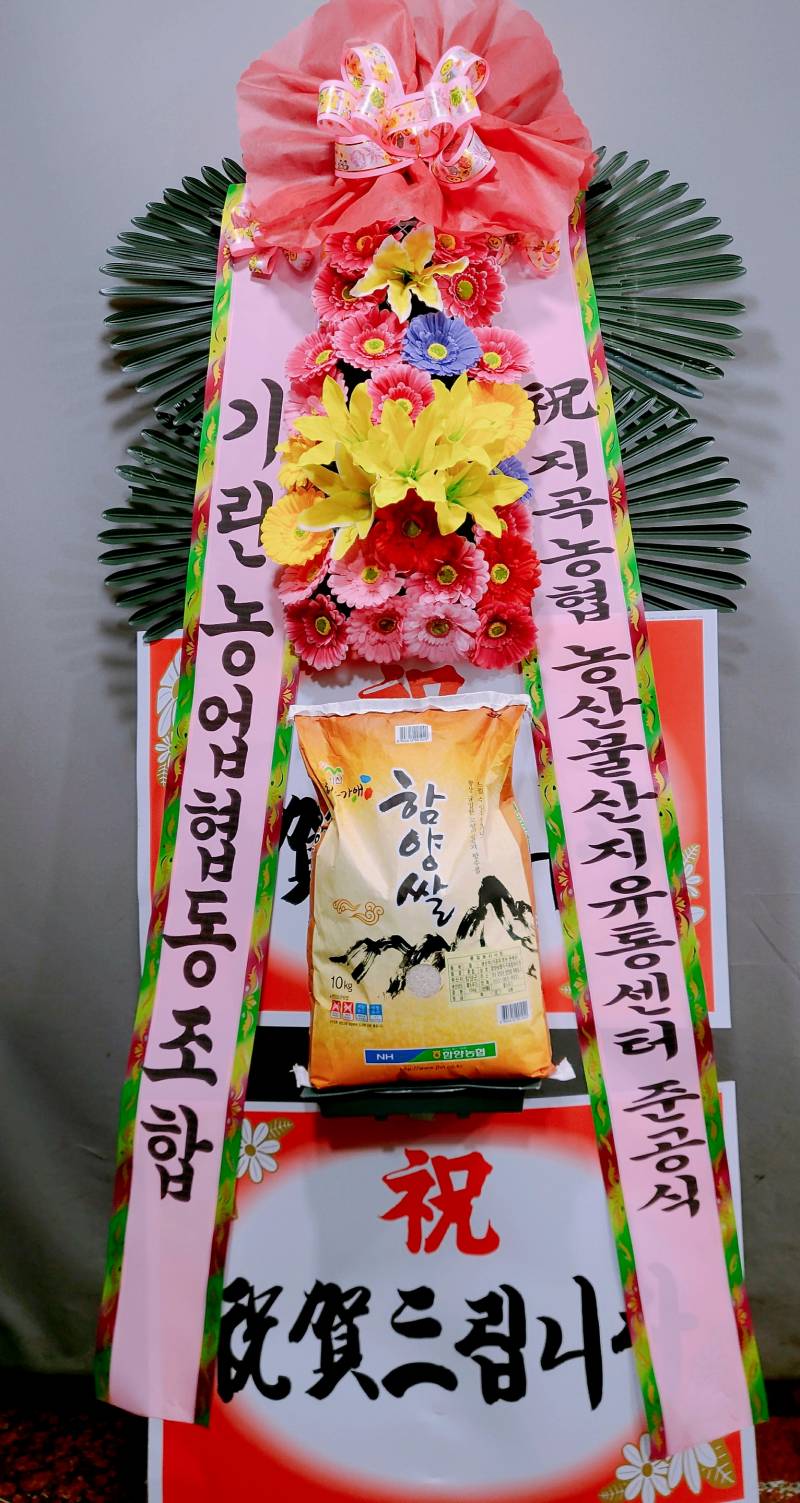 기린농업협동조합
祝 지곡농협 농산물산지유통센터 준공식
祝
賀
함양쌀
10kg
NH 함양농협
祝
祝賀드립니다